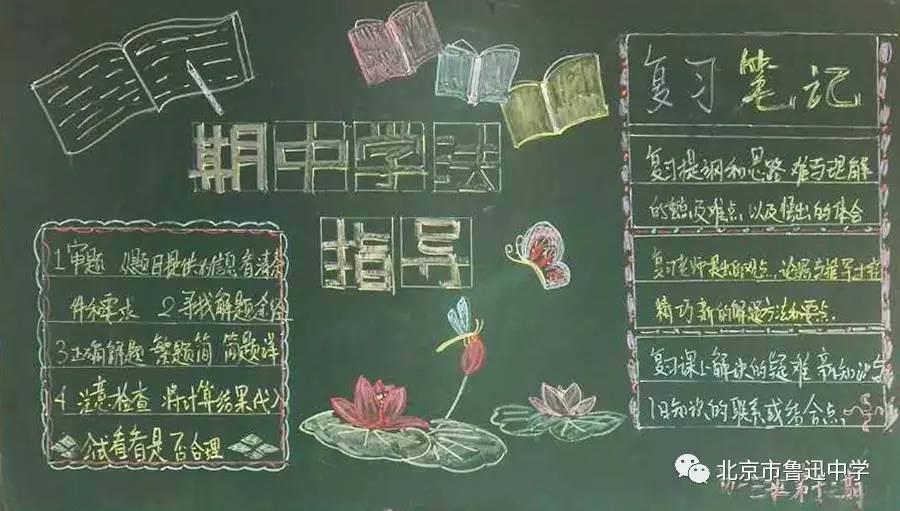 期中学法
指导
1审题 从题目提供的信息看清条
件和要求 2寻找解题途径
3正确解题 繁题简 简题详
4 注意检查 将计算结果代入
试看看是否合理
复习笔记
复习提纲和思路 难与理解
的重点及难点 以及悟出的体会
复习老师 观点、论据与推导过程
精巧 新的解题方法和要点.
复习课上解决的疑难 新知识与
旧知识的联系或结合点
北京市鲁迅中学
初一三班第十三期